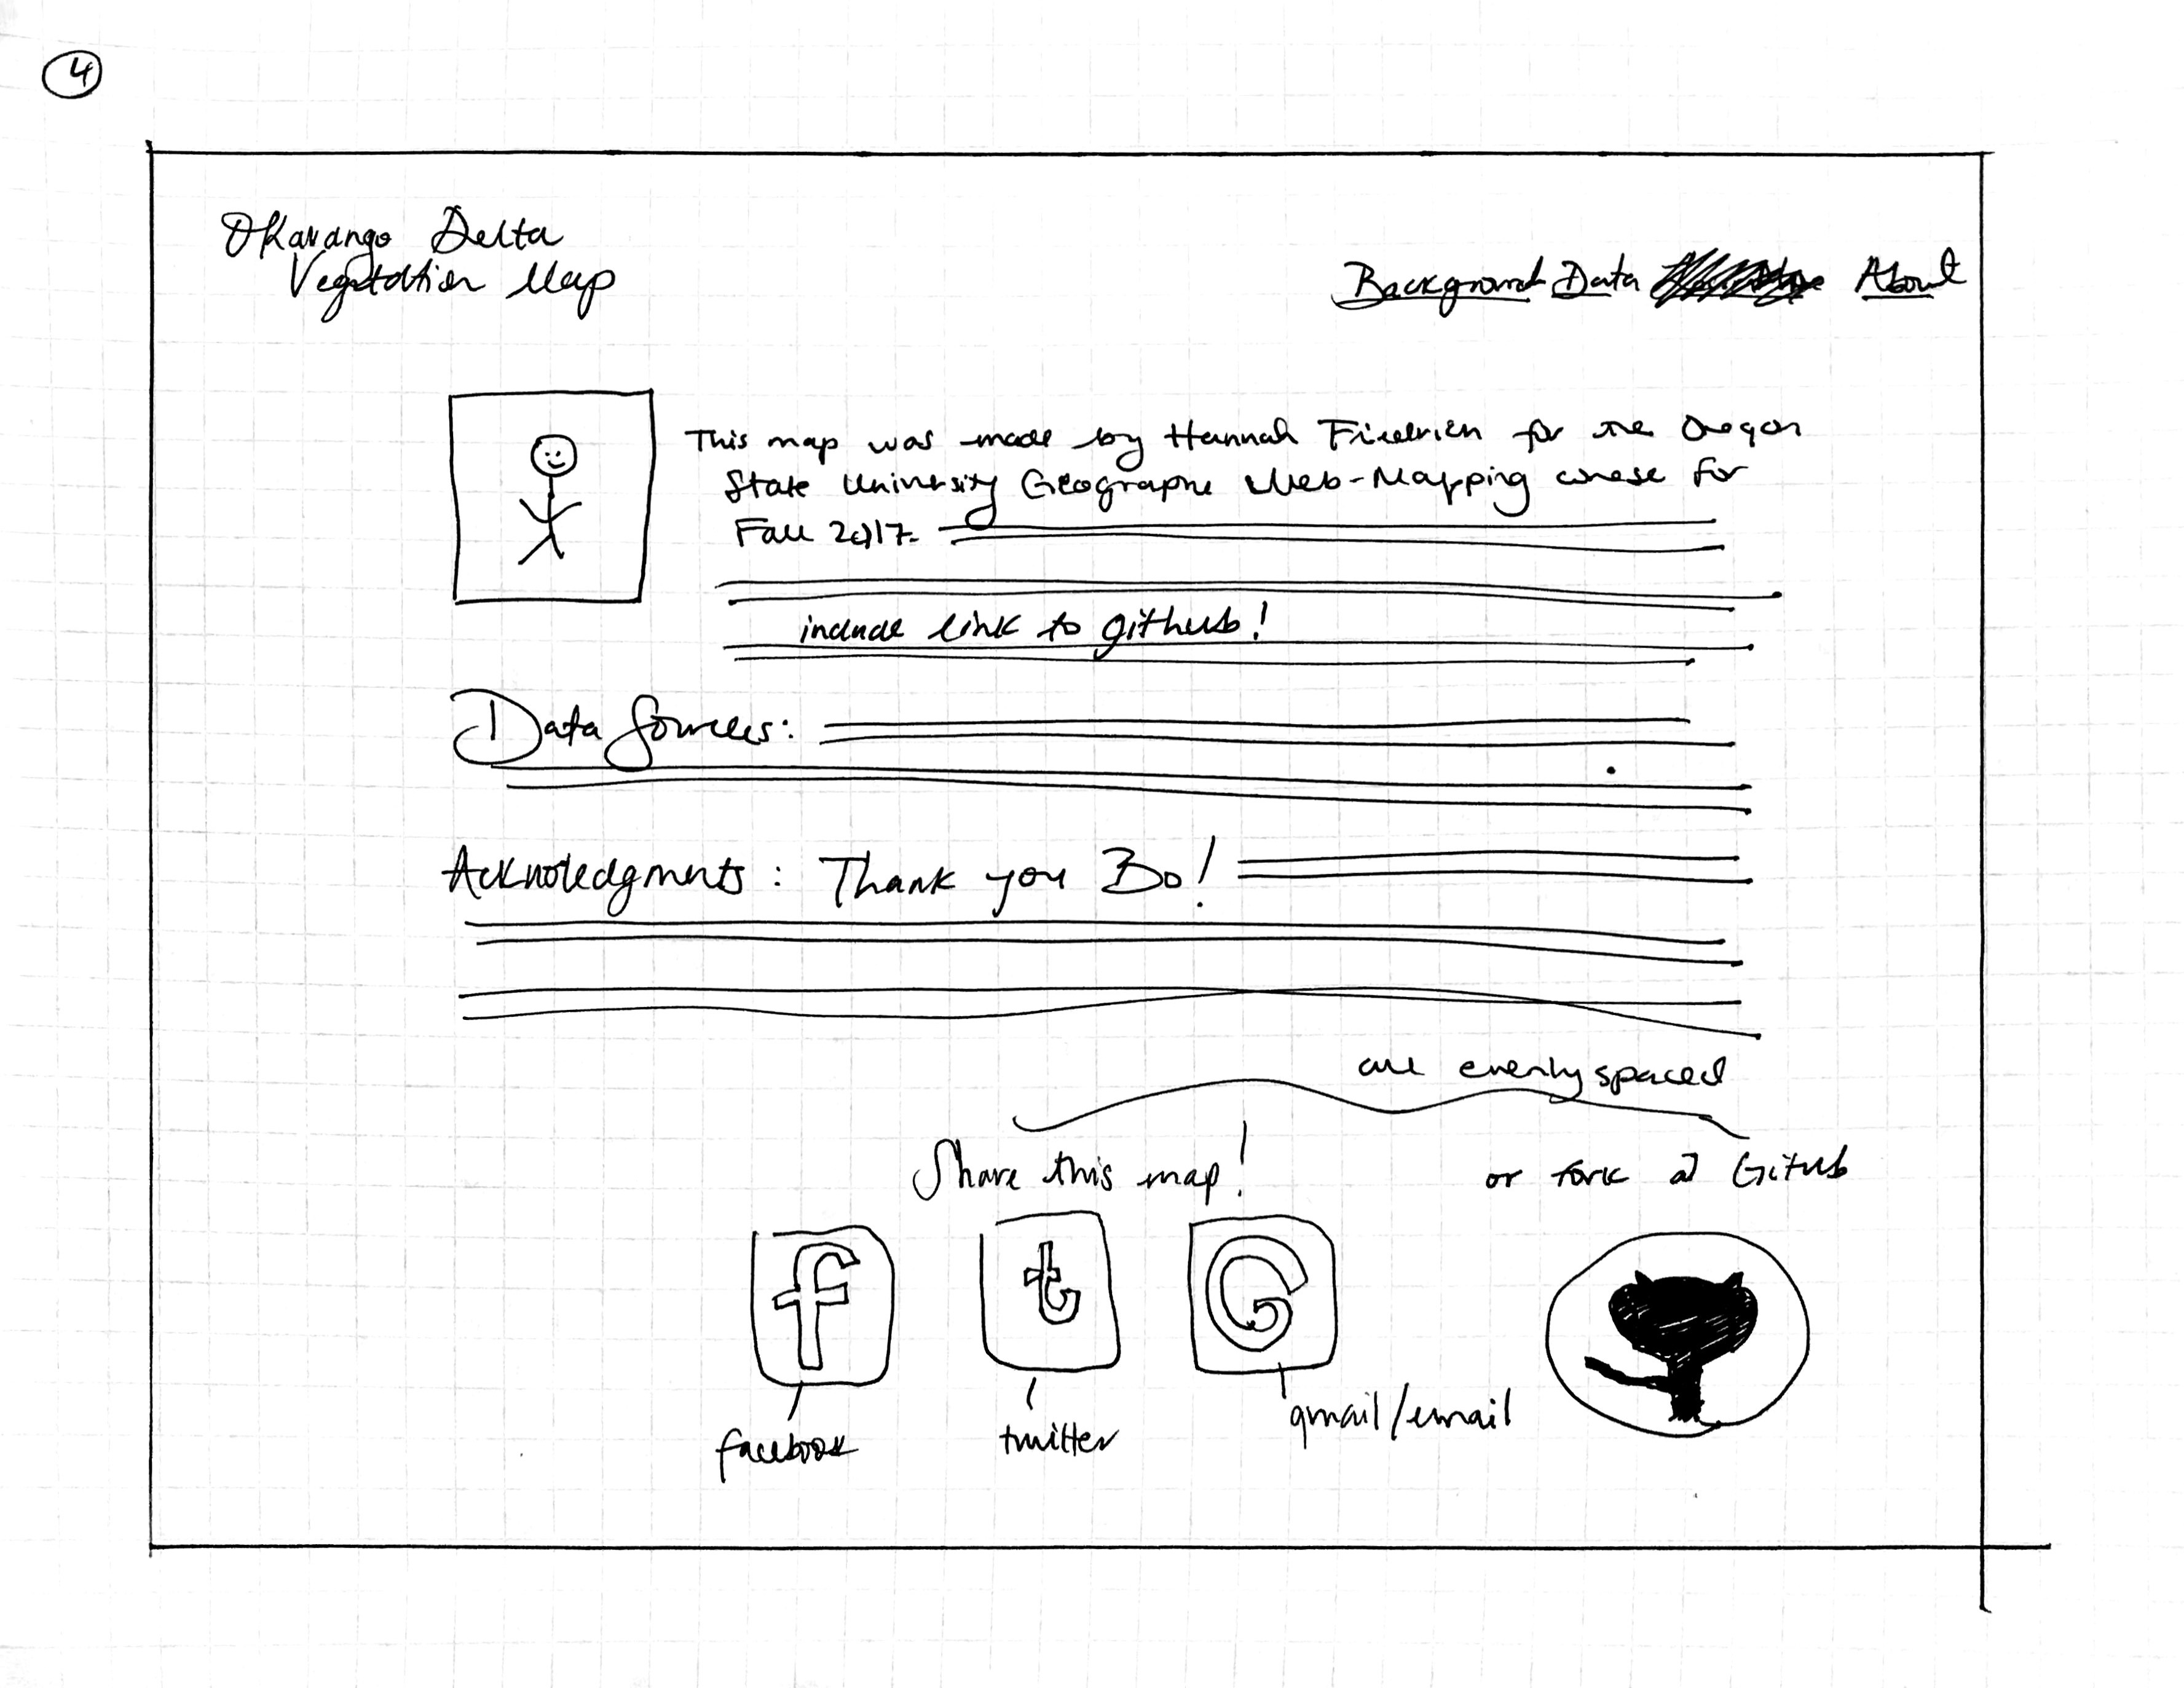 4
Okavango Delta
Vegetation Map
Background Data About
This map was made by Hannah Friedrich for the Oregon
State University Geographe Web-Mapping course for
Fall 2017.
include link to github!
Data Sources:
Acknoledgments: Thank you Bo!
are evenly spaced
Share this map!
or fork at GitHub
f
t
G
facebook
twitter
gmail/email